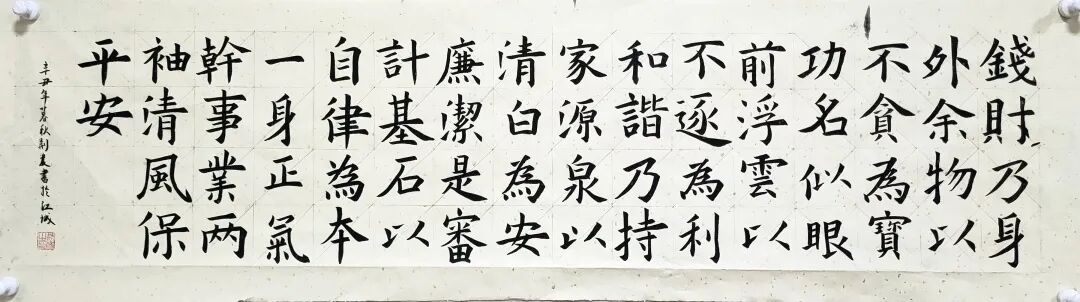 錢財乃身
外余物以
不貪為寶
功名似眼
前浮雲以
不逐為利
和諧乃持
家源泉以
清白為安
廉潔是審
計基石以
自律為本
一身正氣
幹事業两
袖清風保
平安
辛丑年暮秋刘友書於江城